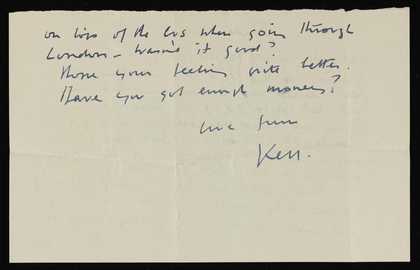 on top of the bus when going through
London – wasn't it good?
Hope your feeling quite better.
Have you got enough money?
love from
Ken.